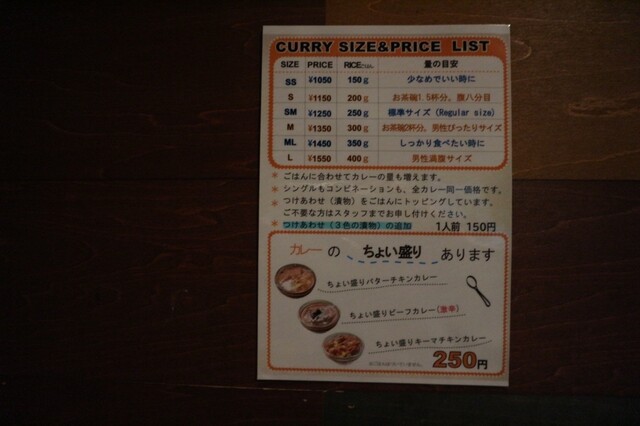 CURRY SIZE&PRICE LIST
SIZE PRICE RICE 量の目安
SS ¥1050 150g 少なめでいい時に
S ¥1150 200g お茶碗1.5杯分。腹八分目
SM ¥1250 250g 標準サイズ(Regular size)
M ¥1350 300g お茶碗2杯分。男性ぴったりサイズ
ML ¥1450 350g しっかり食べたい時に
L ¥1550 400g 男性満腹サイズ
* ごはんに合わせてカレーの量も増えます。
* シングルもコンビネーションも、全カレー同一価格です。
* つけあわせ(漬物)をごはんにトッピングしています。
ご不要な方はスタッフまでお申し付けください。
* つけあわせ(3色の漬物)の追加 1人前 150円
カレーの ちょい盛り あります
ちょい盛りバターチキンカレー
ちょい盛りビーフカレー(激辛)
ちょい盛りキーマチキンカレー
250円